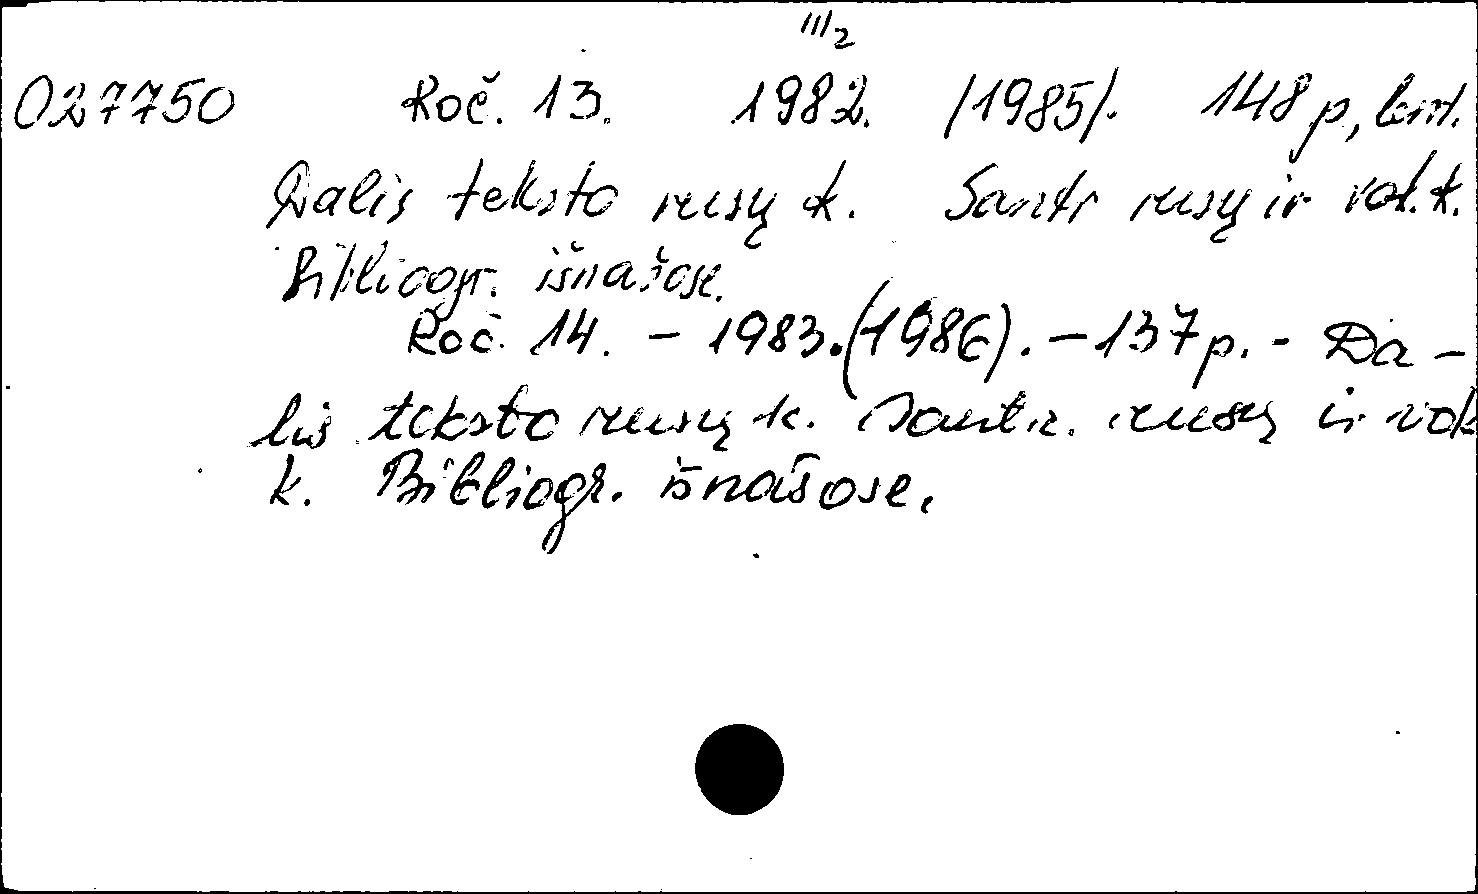 III/2
027750 Roč. 13. 1982. /1985/. 148 p, lent.
Dalis teksto rusų k. Santr rusų ir vok. k.
Bibliogr. išnašose.
Roč. 14. – 1983. (1986). – 137 p. - Da-
lis teksto rusų k. Santr. rusų ir vok
k. Bibliogr. išnašose.